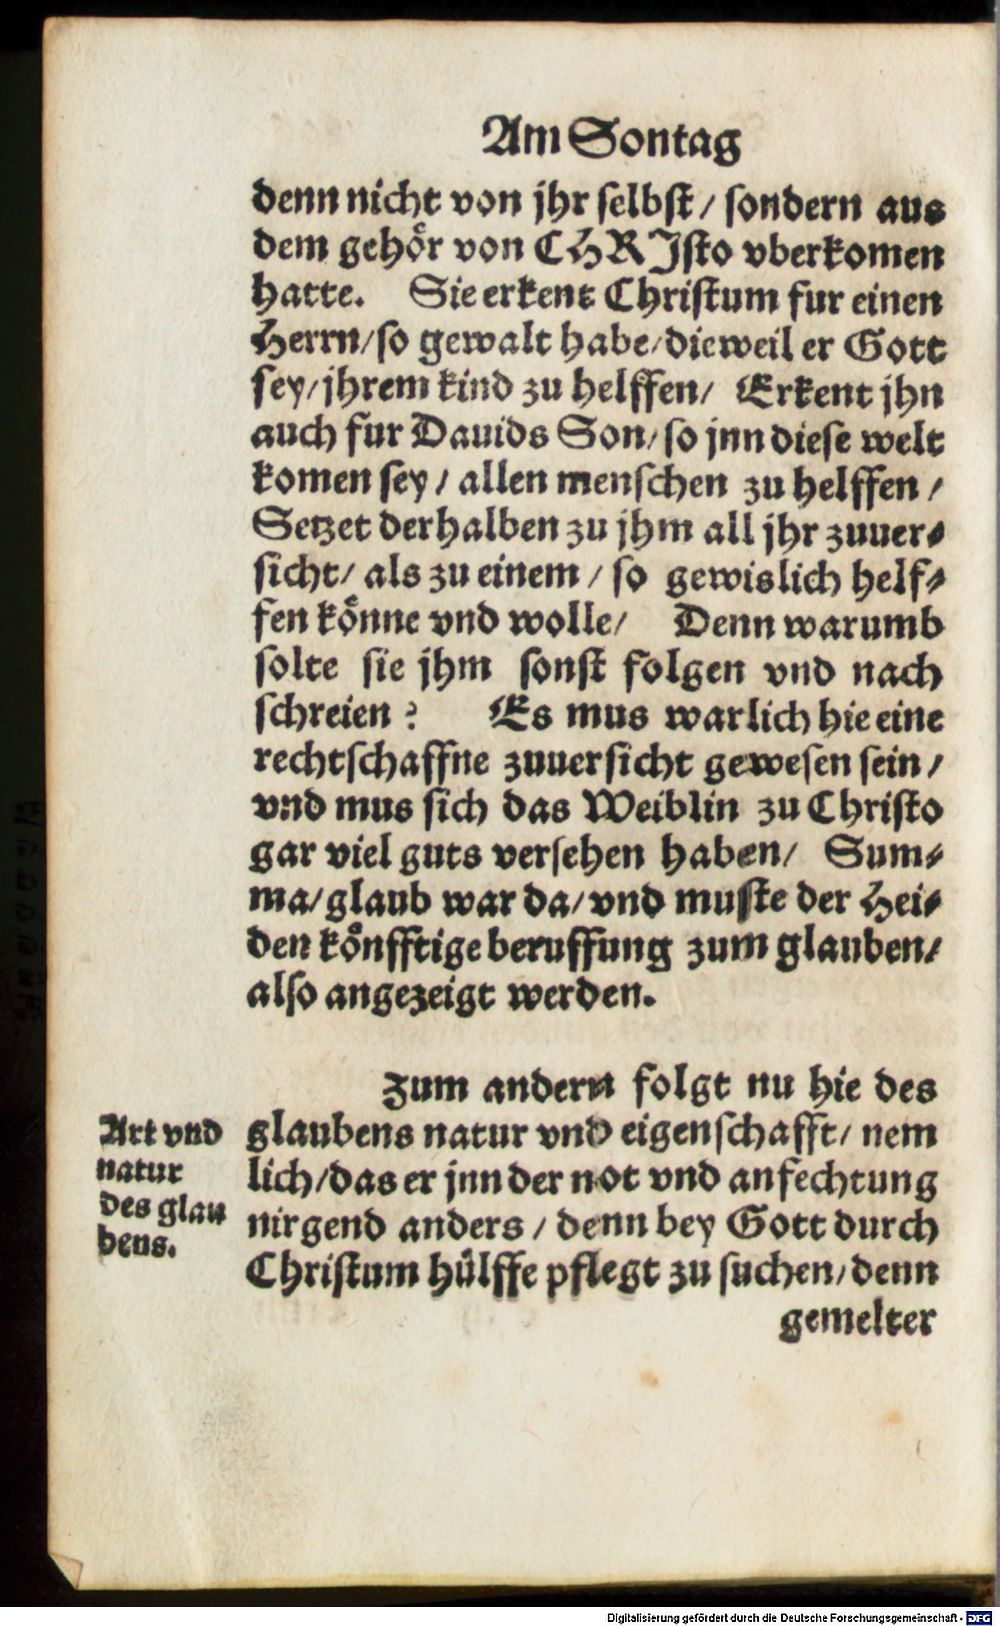 Am Sontag
denn nicht von jhr selbst / sondern aus
dem gehoͤr von CHRJsto vberkomen
hatte. Sie erkent Christum fur einen
Herrn / so gewalt habe / dieweil er Gott
sey / jhrem kind zu helffen / Erkent jhn
auch fur Dauids Son / so jnn diese welt
komen sey / allen menschen zu helffen /
Setzet derhalben zu jhm all jhr zuuer⸗
sicht / als zu einem / so gewislich helf⸗
fen koͤnne vnd wolle / Denn warumb
solte sie jhm sonst folgen vnd nach
schreien ? Es mus warlich hie eine
rechtschaffne zuuersicht gewesen sein /
vnd mus sich das Weiblin zu Christo
gar viel guts versehen haben / Sum⸗
ma / glaub war da / vnd muste der Hei⸗
den koͤnfftige beruffung zum glauben /
also angezeigt werden.
Zum andern folgt nu hie des
glaubens natur vnd eigenschafft / nem
lich / das er jnn der not vnd anfechtung
nirgend anders / denn bey Gott durch
Christum huͤlffe pflegt zu suchen / denn
gemelter
Art vnd
natur
des glau
bens.
Digitalisierung gefördert durch die Deutsche Forschungsgemeinschaft - DFG